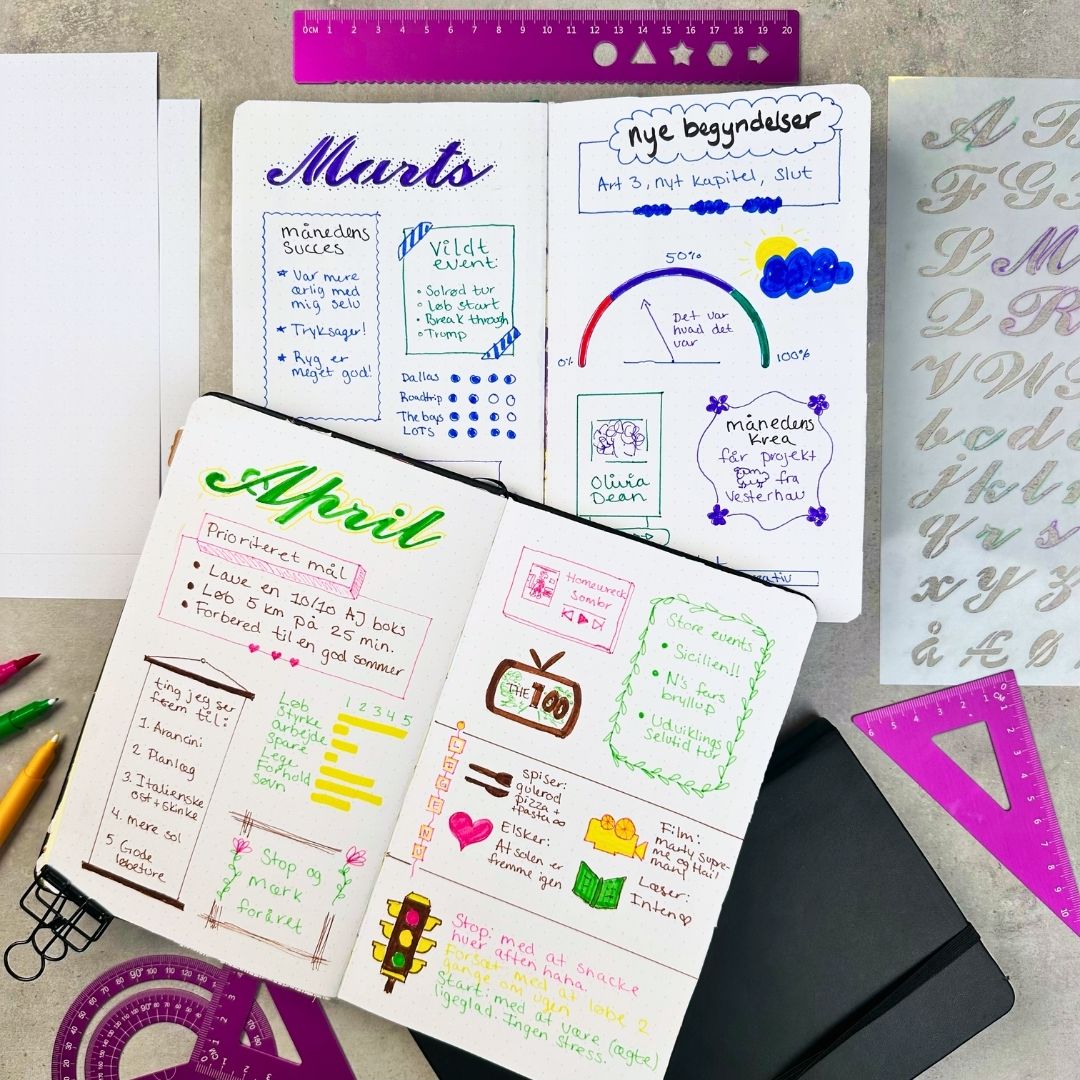 0CM 1 2 3 4 5 6 7 8 9 10 11 12 13 14 15 16 17 18 19 20
Marts
månedens
succes
Var mere
ærlig med
mig selv
Tryksager!
Ryg er
meget god!
Vildt
event:
Solrød tur
Løb start
Break through
Trump
Dallas
Roadtrip
The boys
LOTS
nye begyndelser
Art 3, nyt kapitel, slut
50%
0%
100%
Det var
hvad det
var
Olivia
Dean
månedens
krea
får projekt
fra
Vesterhav
April
Prioriteret mål
Lave en 10/10 AJ boks
Løb 5 km på 25 min.
Forbered til en god sommer
ting jeg ser
frem til:
1. Arancini
2 Planlæg
3. Italienske
ost + skinke
4. mere sol
5 Gode
løbeture
1 2 3 4 5
Løb
Styrke
arbejde
Spare
Lege
Forhold
Søvn
Stop og
mærk
foråret
Homewreck
sombr
THE 100
Store events
Sicilien!!
N's fars
bryllup
Udviklings
Selvtid tur
spiser:
gulerod
pizza +
pasta
Elsker:
At solen er
fremme igen
Film:
marty supre-
me og Hail
mary
Læser:
Inten
Stop: med at snacke
hver aften haha.
Forsæt med at løbe 2
gange om ugen
Start: med at være (ægte)
ligeglad. Ingen stress.
A B
F G
L M
Q R
V W
b c d e
j k l
q r s
x y z
å Æ Ø